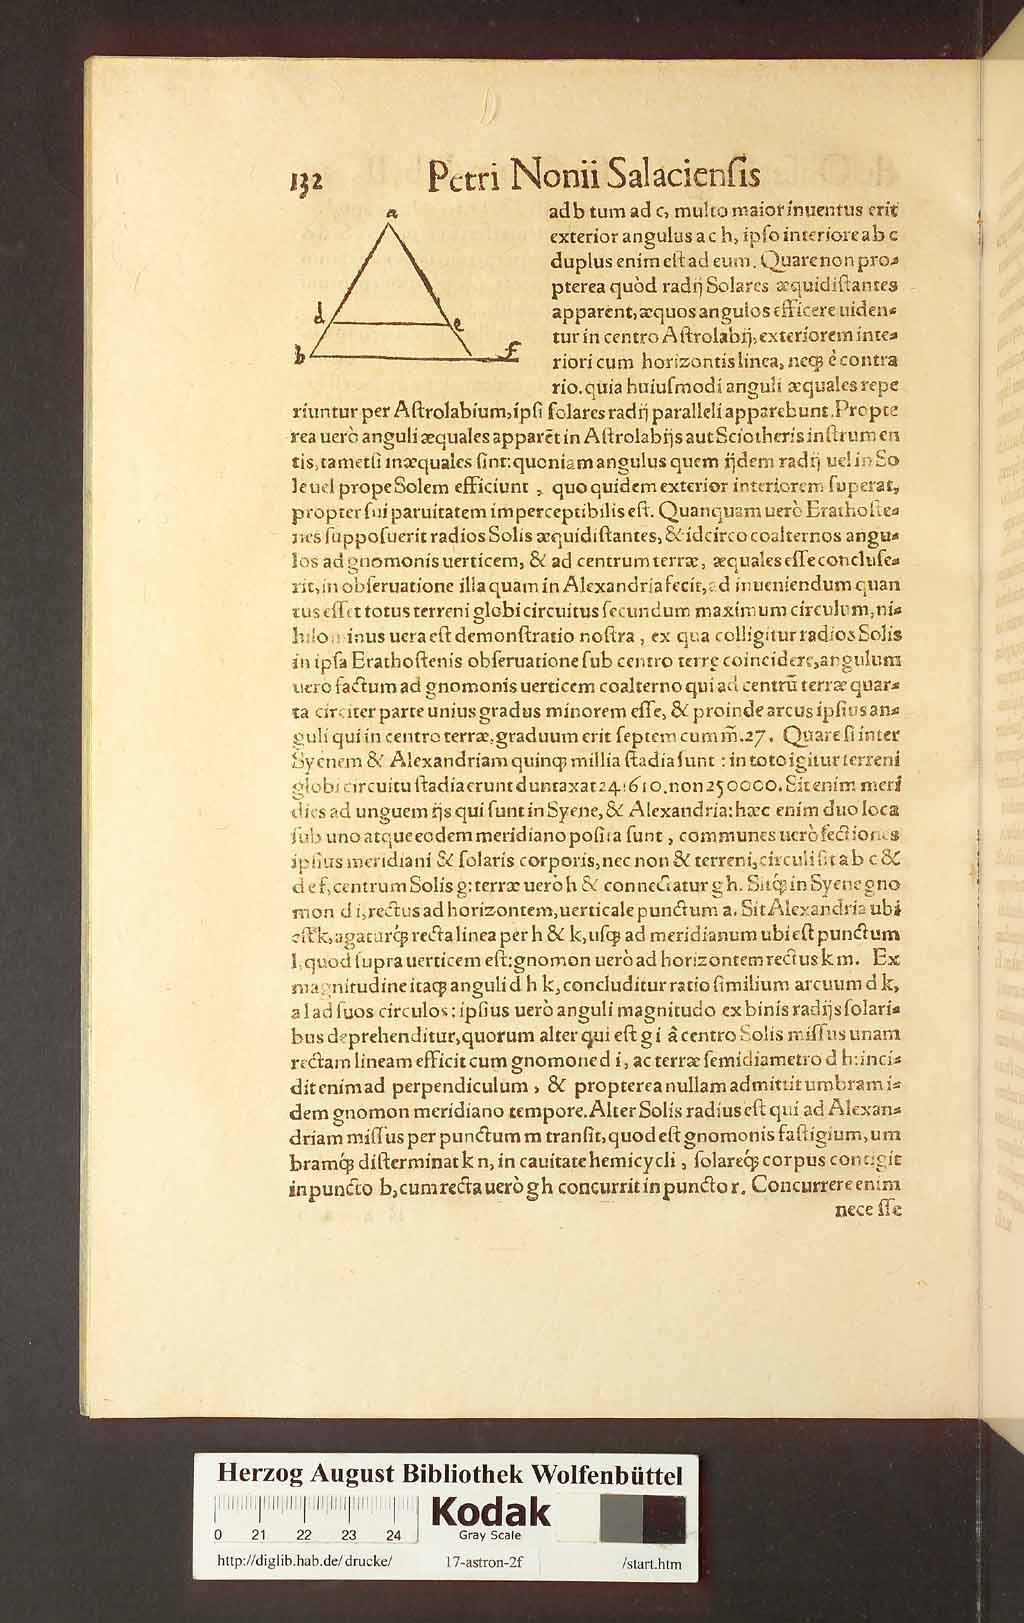 132 Petri Nonii Salacienſis
a
d
e
b
f
ad b tum ad c, multo maior inuentus erit
exterior angulus a c h, ipſo interiore a b c
duplus enim eſt ad eum. Quare non pro-
pterea quòd radij Solares æquidiſtantes
apparent, æquos angulos efficere uiden-
tur in centro Aſtrolabij, exteriorem inte-
riori cum horizontis linea, neqꝫ è contra
rio. quia huiuſmodi anguli æquales repe
riuntur per Aſtrolabium, ipſi ſolares radij paralleli apparebunt. Propte
rea uerò anguli æquales apparēt in Aſtrolabijs aut Sciotheris inſtrumen
tis, tametſi inæquales ſint: quoniam angulus quem ijdem radij uel in So
le uel prope Solem efficiunt, quo quidem exterior interiorem ſuperat,
propter ſui paruitatem imperceptibilis eſt. Quanquam uerò Erathoſte-
nes ſuppoſuerit radios Solis æquidiſtantes, & idcirco coalternos angu-
los ad gnomonis uerticem, & ad centrum terræ, æquales eſſe concluſe-
rit, in obſeruatione illa quam in Alexandria fecit, ad inueniendum quan
tus eſſet totus terreni globi circuitus ſecundum maximum circulum, ni-
hilominus uera eſt demonſtratio noſtra, ex qua colligitur radios Solis
in ipſa Erathoſtenis obſeruatione ſub centro terrę coincidere, angulum
uero factum ad gnomonis uerticem coalterno qui ad centrū terræ quar-
ta circiter parte unius gradus minorem eſſe, & proinde arcus ipſius an-
guli qui in centro terræ, graduum erit ſeptem cum m̃. 27. Quare ſi inter
Syenem & Alexandriam quinqꝫ millia ſtadia ſunt: in toto igitur terreni
globi circuitu ſtadia erunt duntaxat 241610. non 250000. Sit enim meri
dies ad unguem ijs qui ſunt in Syene, & Alexandria: hæc enim duo loca
ſub uno atque eodem meridiano poſita ſunt, communes uerò ſectiones
ipſius meridiani & ſolaris corporis, nec non & terreni, circuli ſit a b c &
d e f, centrum Solis g: terræ uerò h & connectatur g h. Sitq́ꝫ in Syene gno
mon d i, rectus ad horizontem, uerticale punctum a. Sit Alexandria ubi
eſt k, agaturq́ꝫ recta linea per h & k, uſqꝫ ad meridianum ubi eſt punctum
l, quod ſupra uerticem eſt: gnomon uerò ad horizontem rectus k m. Ex
magnitudine itaqꝫ anguli d h k, concluditur ratio ſimilium arcuum d k,
a l ad ſuos circulos: ipſius uerò anguli magnitudo ex binis radijs ſolari-
bus deprehenditur, quorum alter qui eſt g i â centro Solis miſſus unam
rectam lineam efficit cum gnomone d i, ac terræ ſemidiametro d h: inci-
dit enim ad perpendiculum, & propterea nullam admittit umbram i-
dem gnomon meridiano tempore. Alter Solis radius eſt qui ad Alexan-
driam miſſus per punctum m tranſit, quod eſt gnomonis faſtigium, um
bramq́ꝫ diſterminat k n, in cauitate hemicycli, ſolareq́ꝫ corpus contigit
in puncto b, cum recta uerò g h concurrit in puncto r. Concurrere enim
nece ſſe
Herzog August Bibliothek Wolfenbüttel
Kodak
Gray Scale
0 21 22 23 24
http://diglib.hab.de/drucke/ 17-astron-2f /start.htm